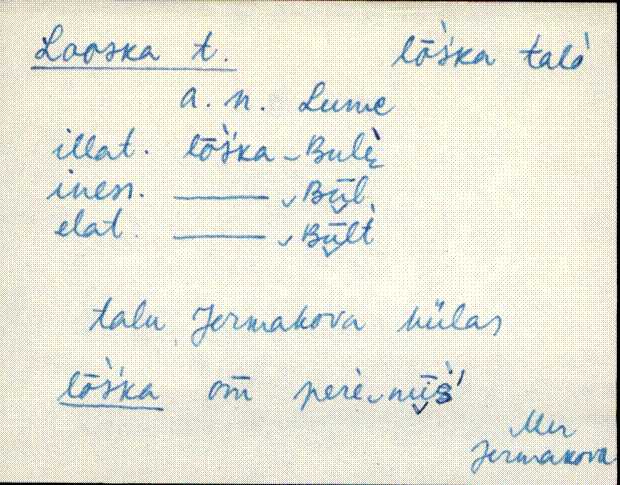 Looska t. lōš̀ka talò
a. n. Lume
illat. lōš̀ka ‿ Bulè̜
iness. ——— ‿ Bū̬l.
elat. ——— ‿ Bū̬lt
talu Jermakova külas
lōš̀ka om̄ perè‿nū̬š'
Mer
Jermakova